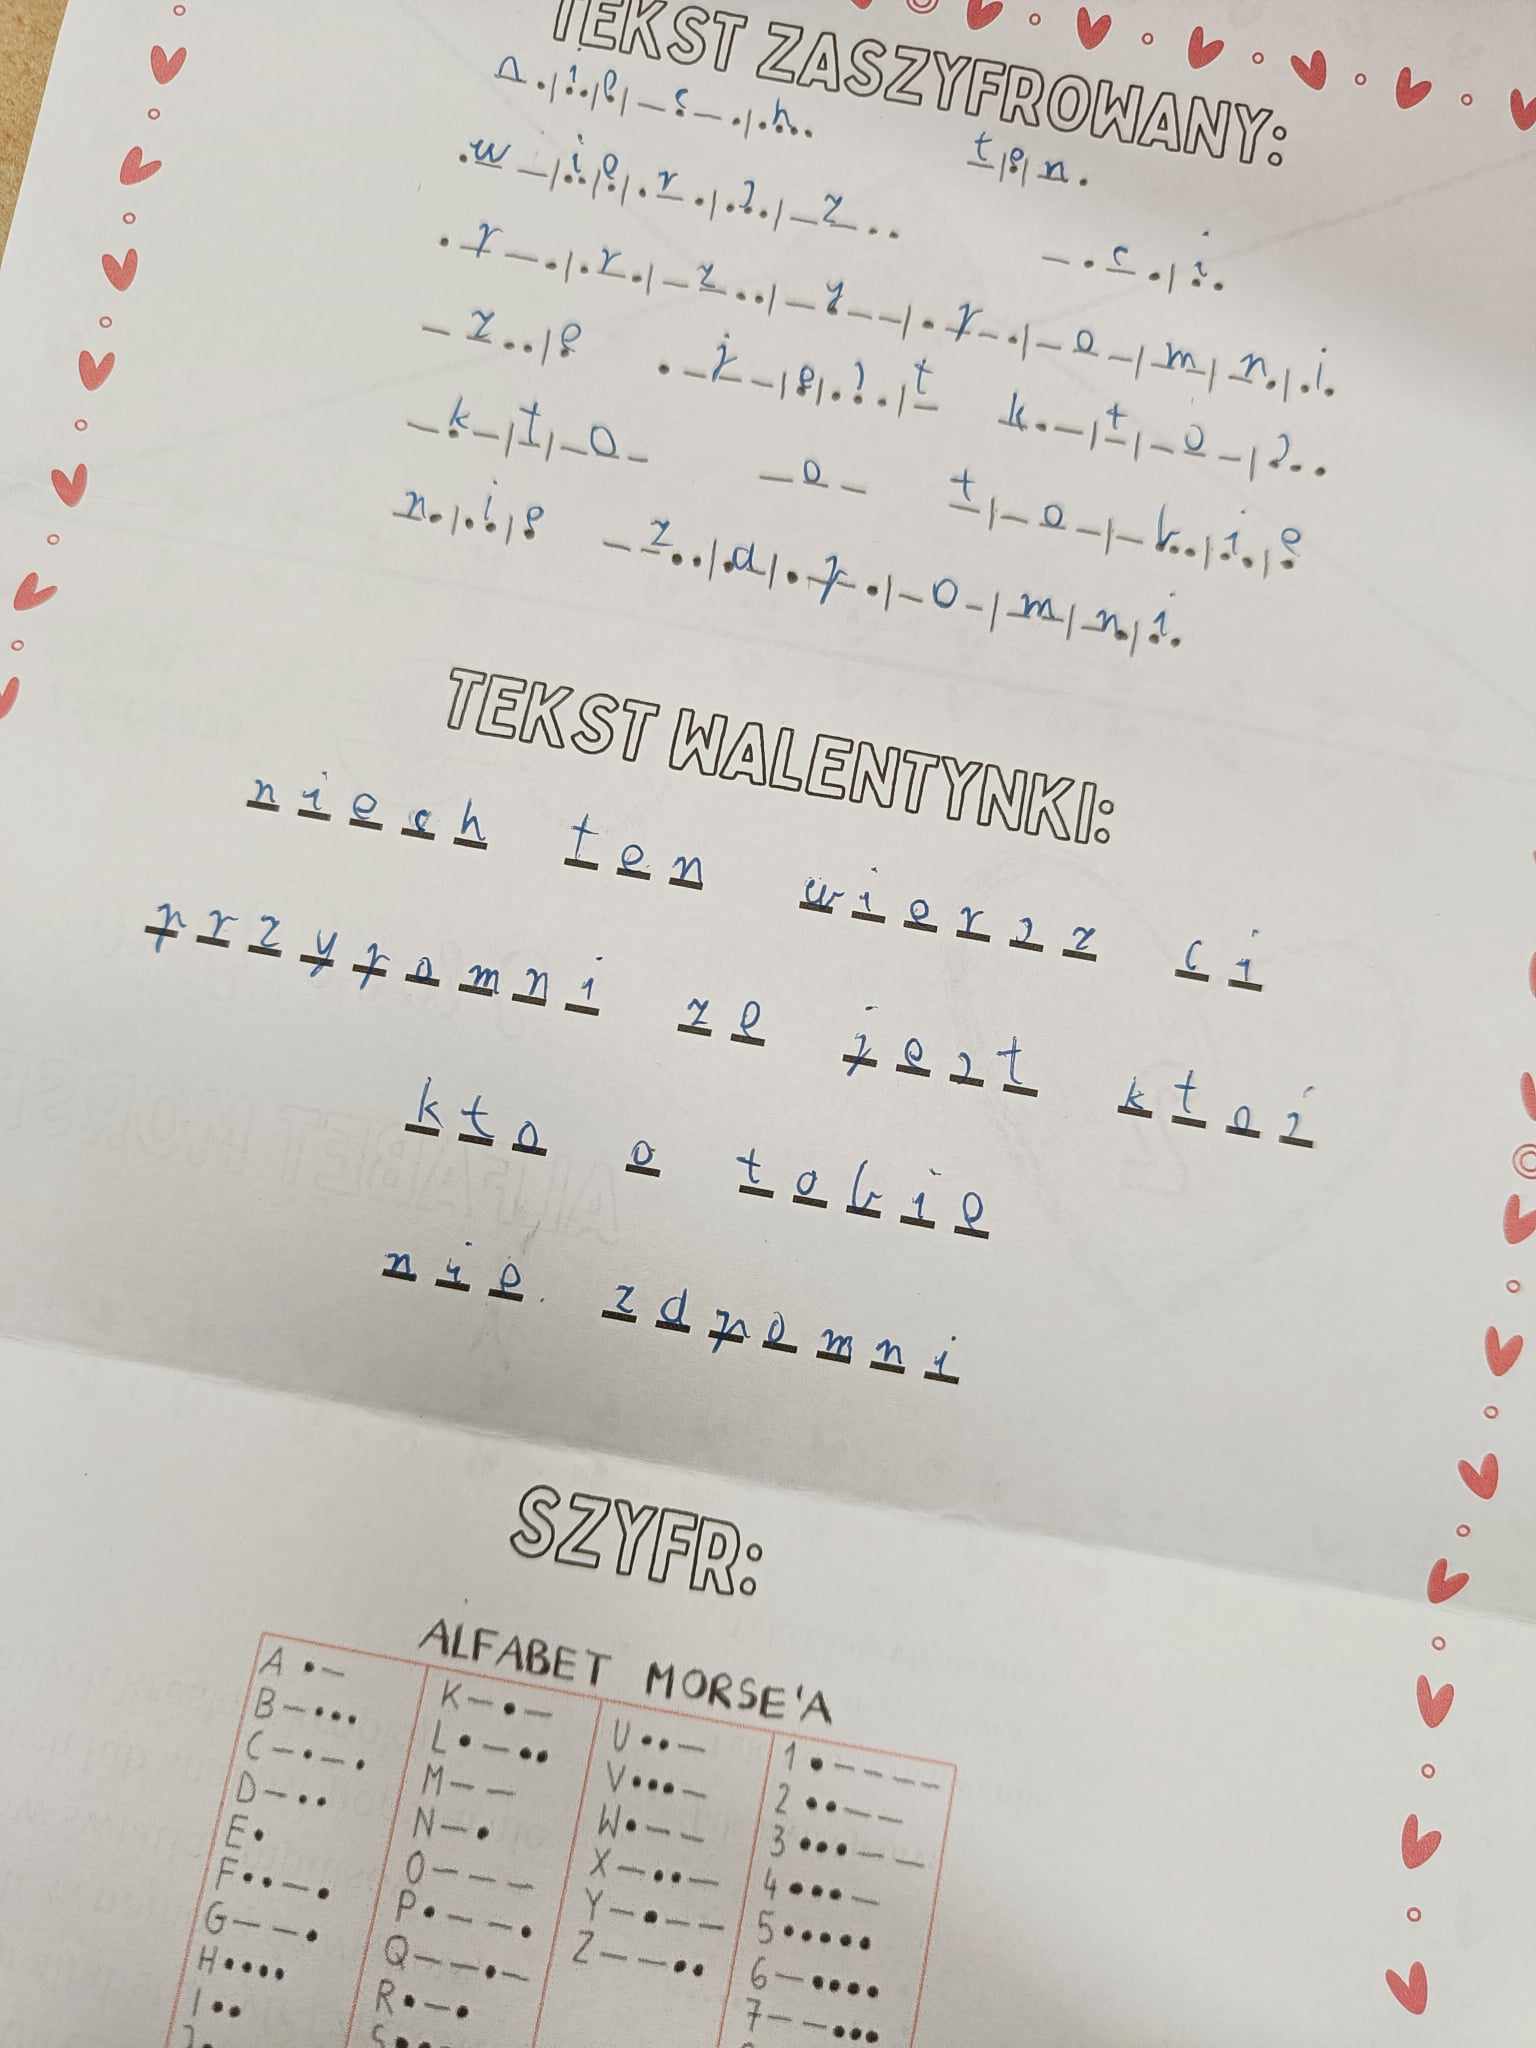 TEKST ZASZYFROWANY:
n i e c h t e n
w i e r s z c i
p r z y p o m n i
z e j e s t k t o s
k t o o t o b i e
n i e z a p o m n i
TEKST WALENTYNKI:
niech ten wiersz ci
przypomni ze jest ktos
kto o tobie
nie zapomni
SZYFR:
ALFABET MORSE'A
A •– K –•– U ••– 1 •––––
B –••• L •–•• V •••– 2 ••––
C –•–• M –– W •–– 3 •••––
D –•• N –• X –••– 4 •••–
E • O ––– Y –•–– 5 •••••
F ••–• P •––• Z ––•• 6 –••••
G ––• Q ––•– 7 ––•••
H •••• R •–•
I ••